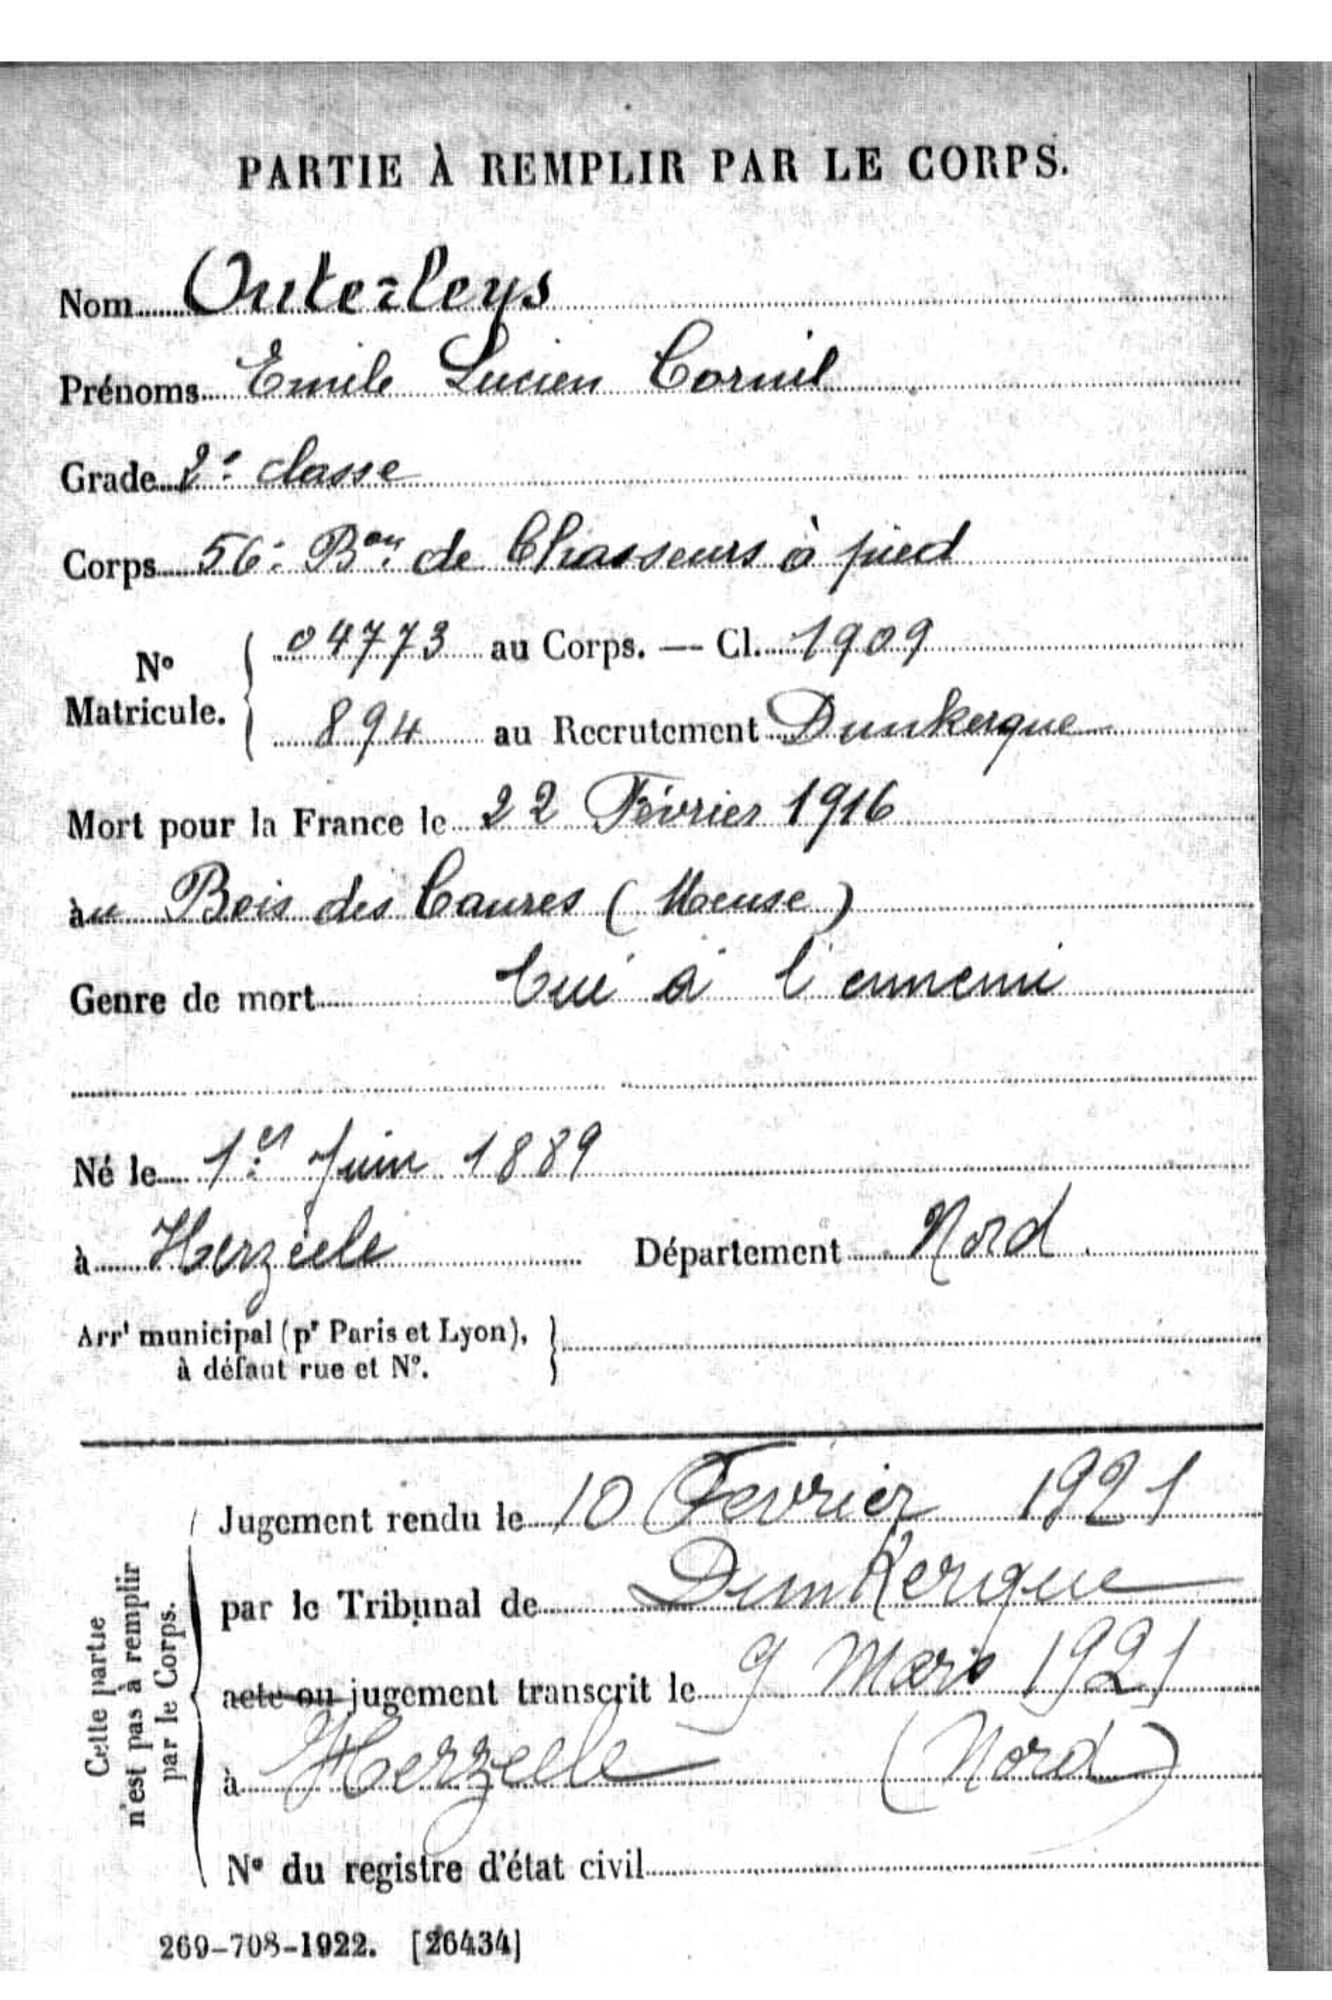 PARTIE À REMPLIR PAR LE CORPS.
Nom Outerleys
Prénoms Emile Lucien Cornil
Grade 2e classe
Corps 56e Bon de Chasseurs à pied
No Matricule. { 04773 au Corps. — Cl. 1909
894 au Recrutement Dunkerque
Mort pour la France le 22 Février 1916
au Bois des Caures (Meuse)
Genre de mort Tué à l'ennemi
Né le 1er Juin 1889
à Herzeele Département Nord
Arrt municipal (pr Paris et Lyon), à défaut rue et No. }
Cette partie n'est pas à remplir par le Corps.
Jugement rendu le 10 Fevrier 1921
par le Tribunal de Dunkerque
acte ou jugement transcrit le 9 Mars 1921
à Herzeele (Nord)
No du registre d'état civil
269-708-1922. [26434]